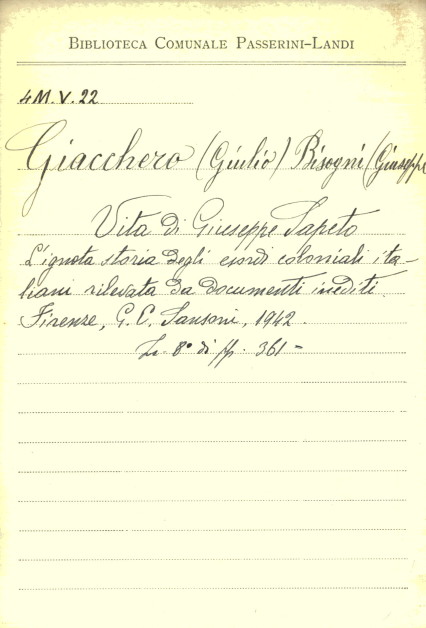 BIBLIOTECA COMUNALE PASSERINI-LANDI
4M.V.22
Giacchero (Giulio) Bisogni (Giuseppe
Vita di Giuseppe Sapeto
L'ignota storia degli esordi coloniali ita-
liani rilevata da documenti inediti.
Firenze, G. C. Sansoni, 1942.
In 8° di pp. 361 -